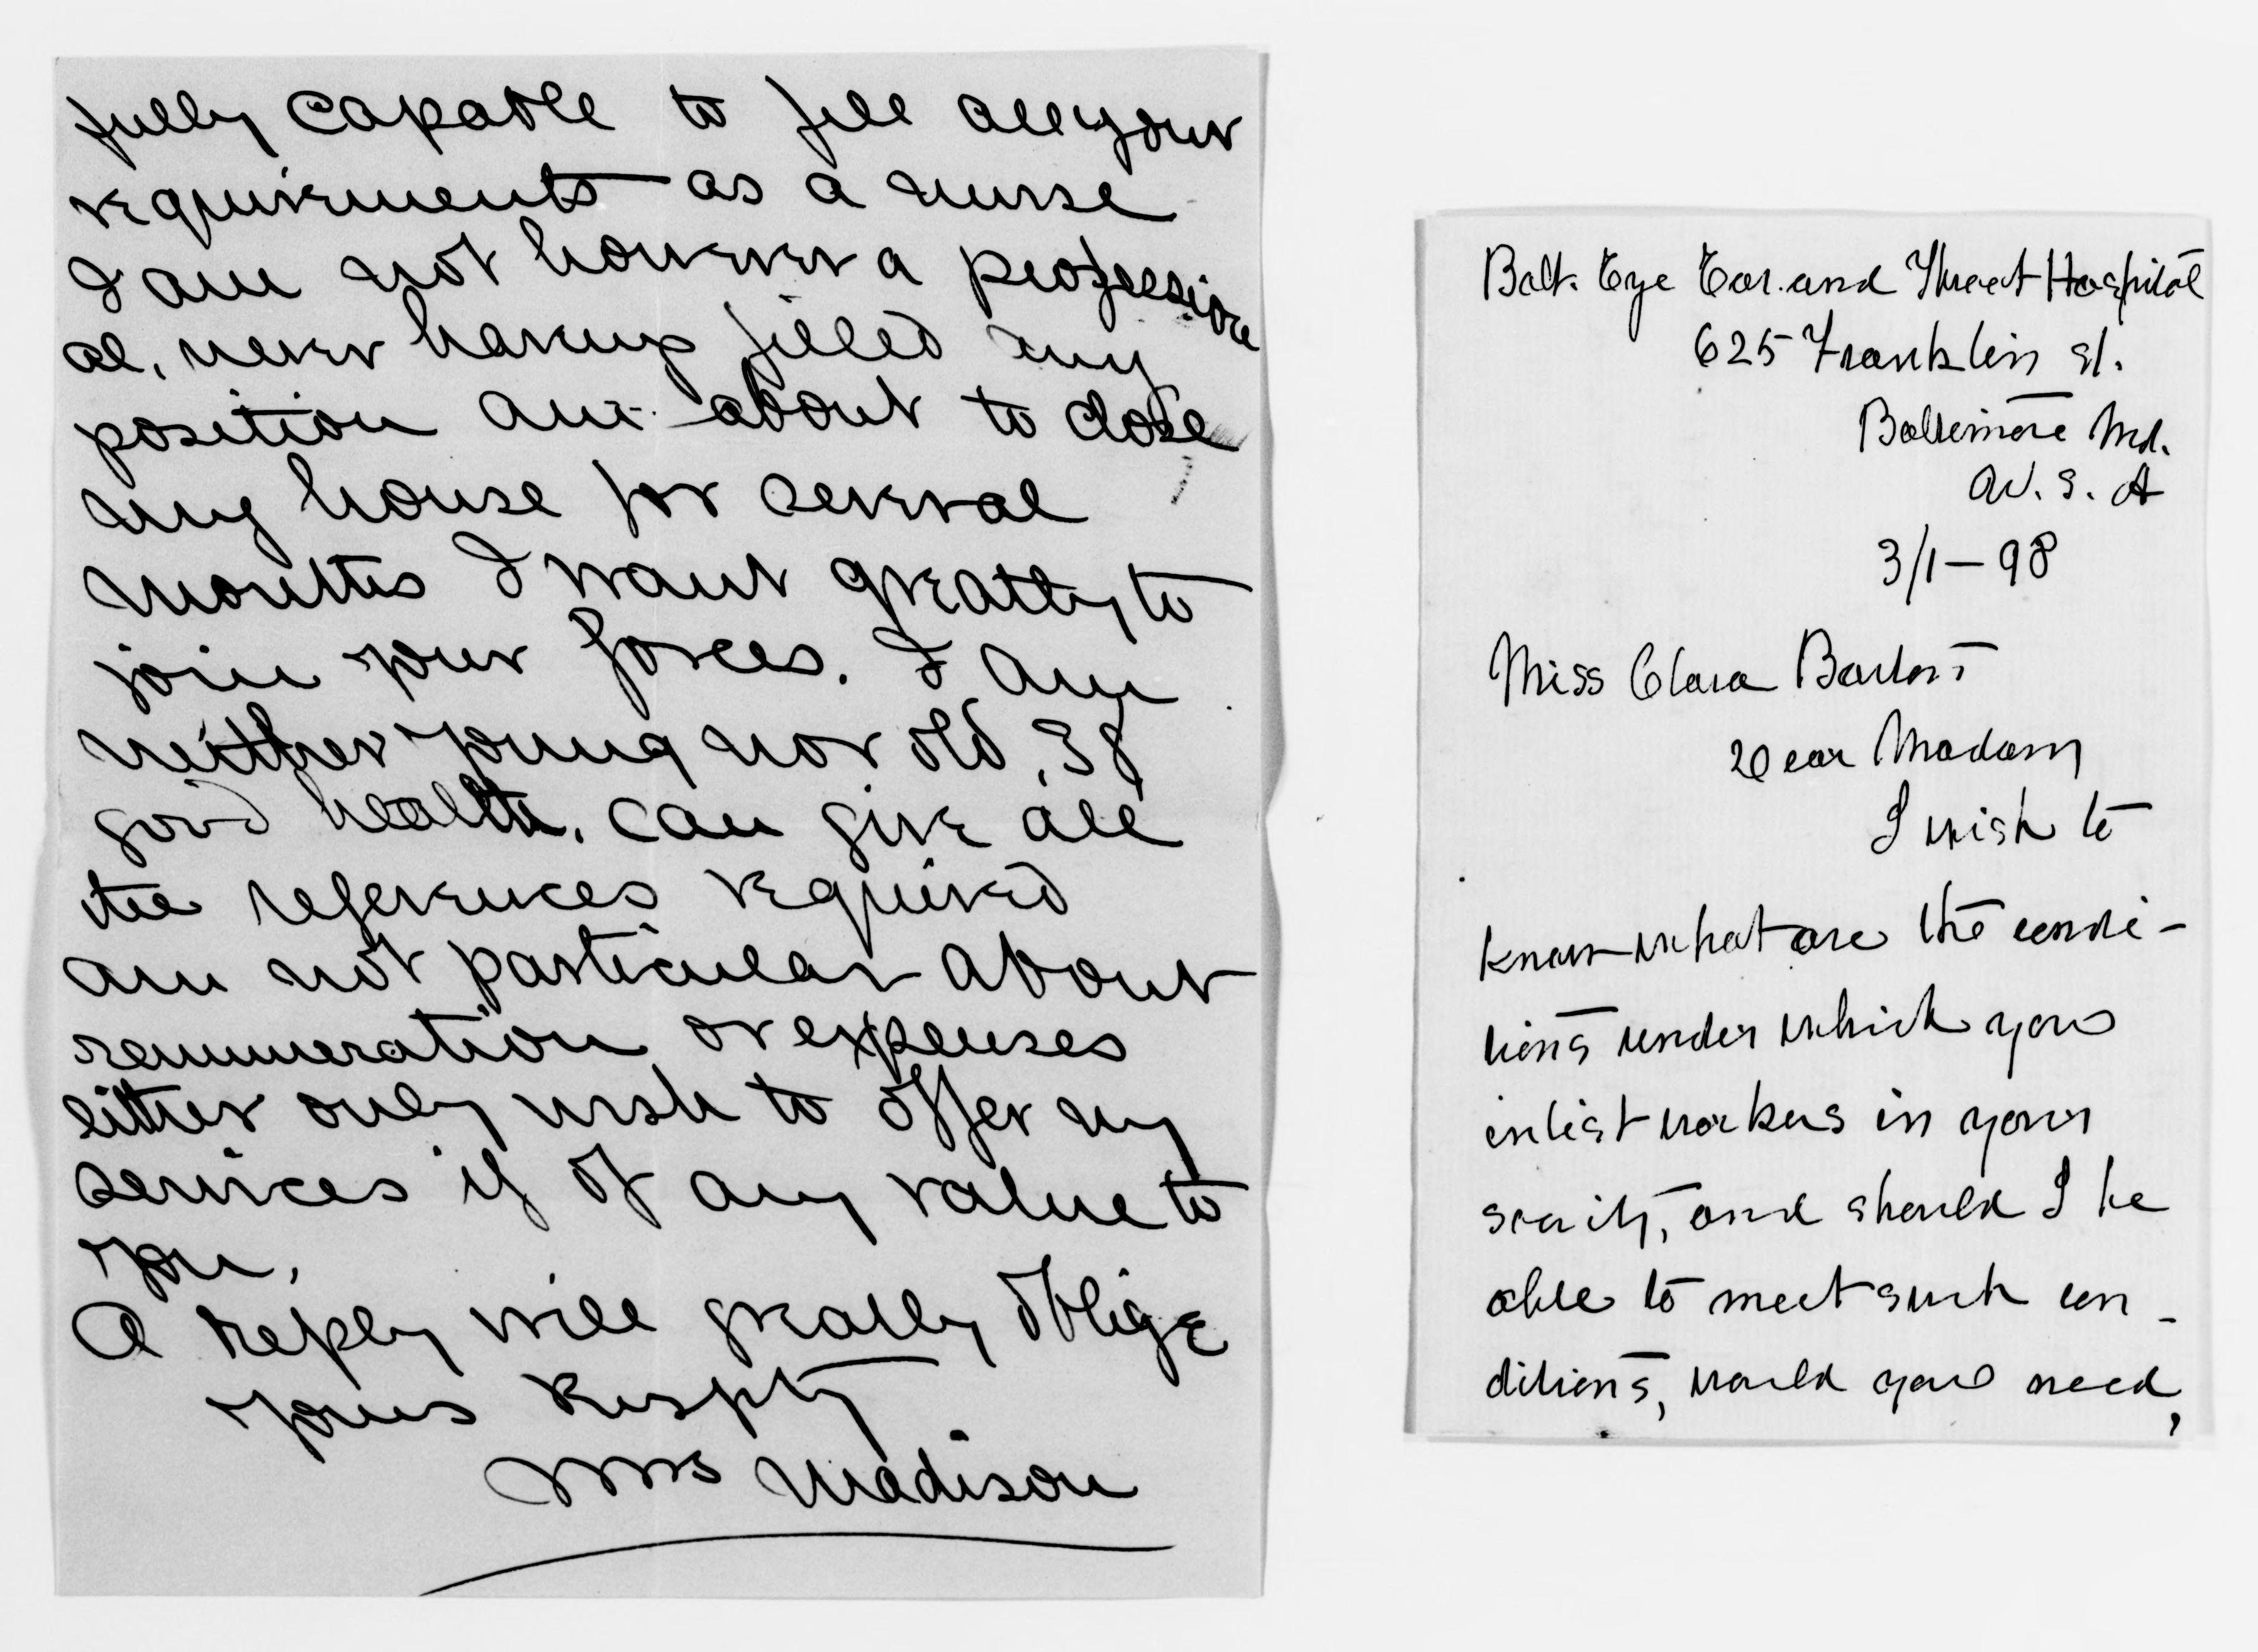 fully capable to fill all your
requirements as a nurse
I am not however a profession
al, never having filled any
position am about to close
my house for several
months I want greatly to
join your forces. I am
neither young nor old, 38
good health, can give all
the references required
am not particular about
remuneration or expenses
either only wish to offer my
services if of any value to
you,
A reply will greatly oblige
yours Respty
Mrs Madison
Balt. Eye Ear. and Throat Hospital
625 Franklin st.
Baltimore Md.
U. S. A
3/1-98
Miss Clara Barton
Dear Madam
I wish to
know what are the condi-
tions under which you
inlist workers in your
society, and should I be
able to meet such con-
ditions, would you need,